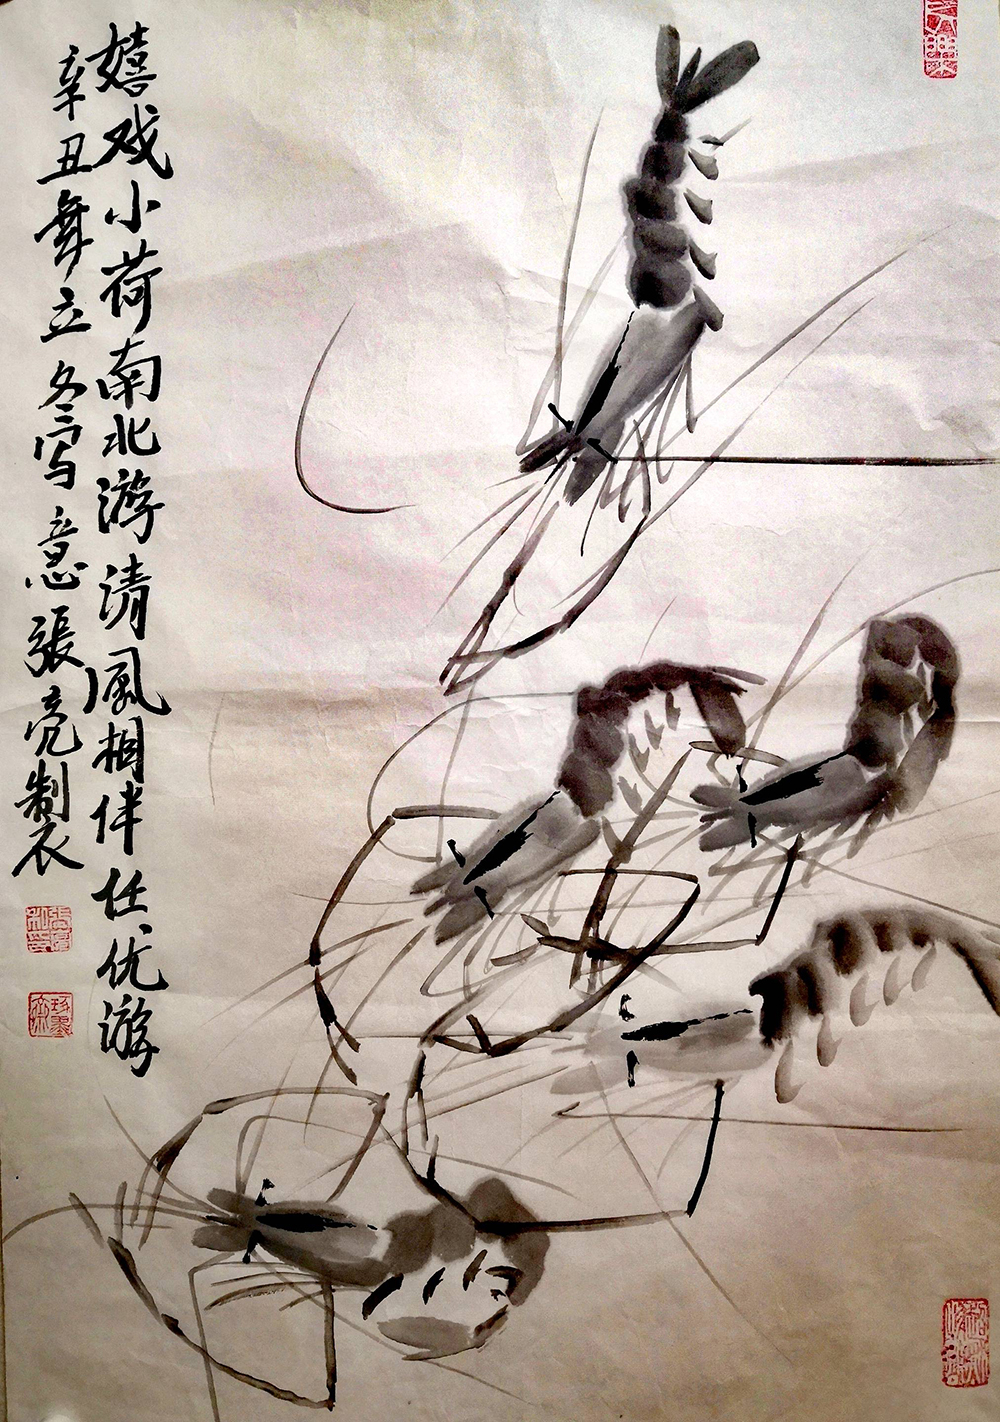 嬉戏小荷南北游清风相伴任优游
辛丑年立冬写意張亮制衣